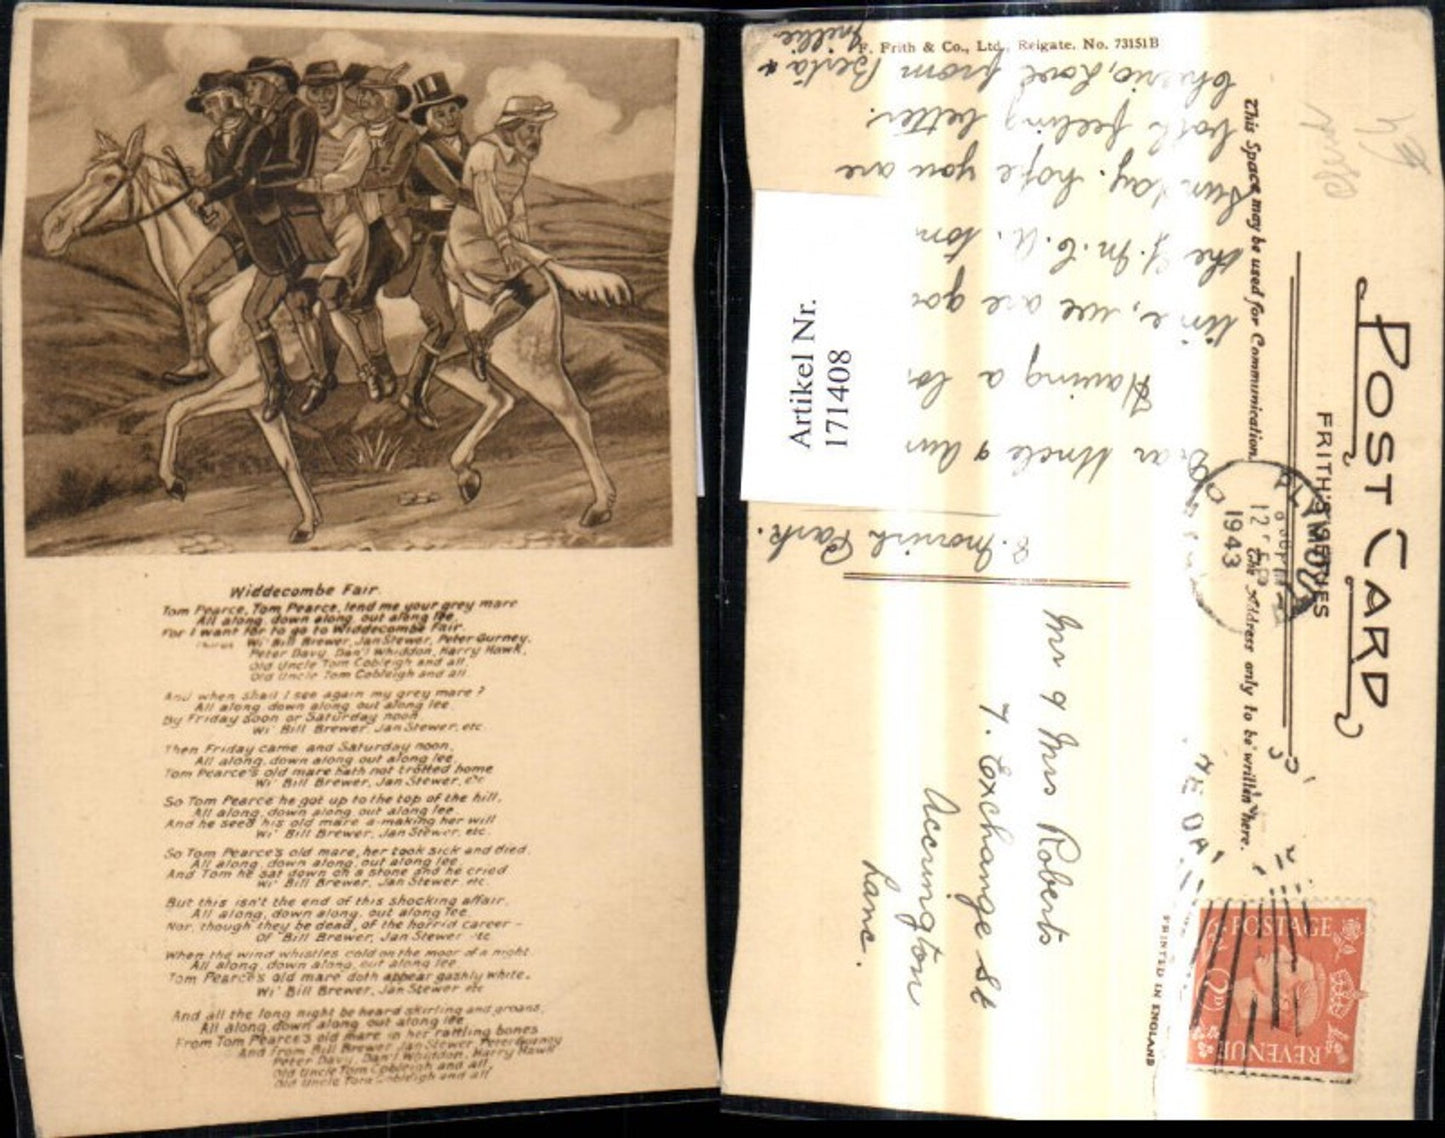 Widdecombe Fair.
Tom Pearce, Tom Pearce, lend me your grey mare
All along, down along, out along lee,
For I want for to go to Widdecombe Fair.
Wi' Bill Brewer, Jan Stewer, Peter Gurney,
Peter Davy, Dan'l Whiddon, Harry Hawk,
Old Uncle Tom Cobleigh and all,
Old Uncle Tom Cobleigh and all.
And when shall I see again my grey mare?
All along, down along, out along lee
By Friday soon or Saturday noon
Wi' Bill Brewer, Jan Stewer, etc.
Then Friday came and Saturday noon,
All along, down along out along lee,
Tom Pearce's old mare hath not trotted home
Wi' Bill Brewer, Jan Stewer, etc
So Tom Pearce he got up to the top of the hill,
All along, down along, out along lee
And he seed his old mare a-making her will
Wi' Bill Brewer, Jan Stewer, etc.
So Tom Pearce's old mare, her took sick and died.
All along, down along, out along lee
And Tom he sat down on a stone and he cried
Wi' Bill Brewer, Jan Stewer, etc.
But this isn't the end of this shocking affair.
All along, down along, out along lee
Nor, though they be dead, of the horrid career -
Of Bill Brewer, Jan Stewer etc
When the wind whistles cold on the moor of a night
All along, down along, out along lee
Tom Pearce's old mare doth appear gashly white.
Wi' Bill Brewer, Jan Stewer etc
And all the long night be heard skirling and groans,
All along, down along out along lee
From Tom Pearce's old mare in her rattling bones
And from Bill Brewer Jan Stewer, Peter Gurney
Peter Davy, Dan'l Whiddon, Harry Hawk
Old Uncle Tom Cobleigh and all,
Old Uncle Tom Cobleigh and all
POST CARD
FRITH'S SERIES
This Space may be used for Communication.
The Address only to be written here.
F. Frith & Co., Ltd., Reigate. No. 73151B
PRINTED IN ENGLAND
Artikel Nr.
171408
Park.
Dear Uncle &
Having a
we are
the Y.M.C.A. ton
Sunday. hope you are
both feeling better.
Cheerio, Love from Berta &
Nellie
Mr & Mrs Roberts
7. Exchange St
Accrington
Lanc.
12
1943
POSTAGE
REVENUE